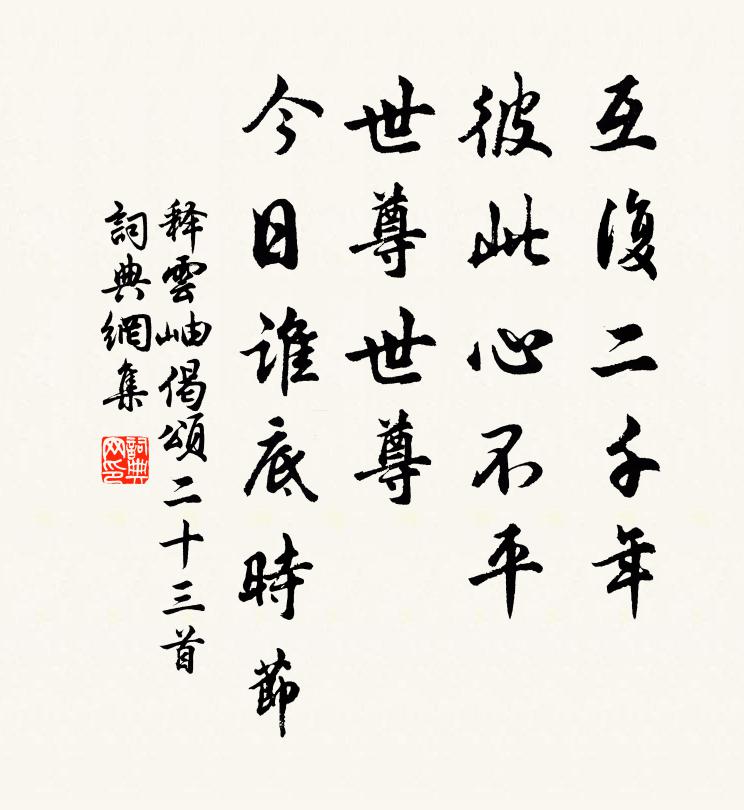 互復二千年
彼此心不平
世尊世尊
今日誰底時節
释雲岫偈頌二十三首
詞典網集
詞典網印